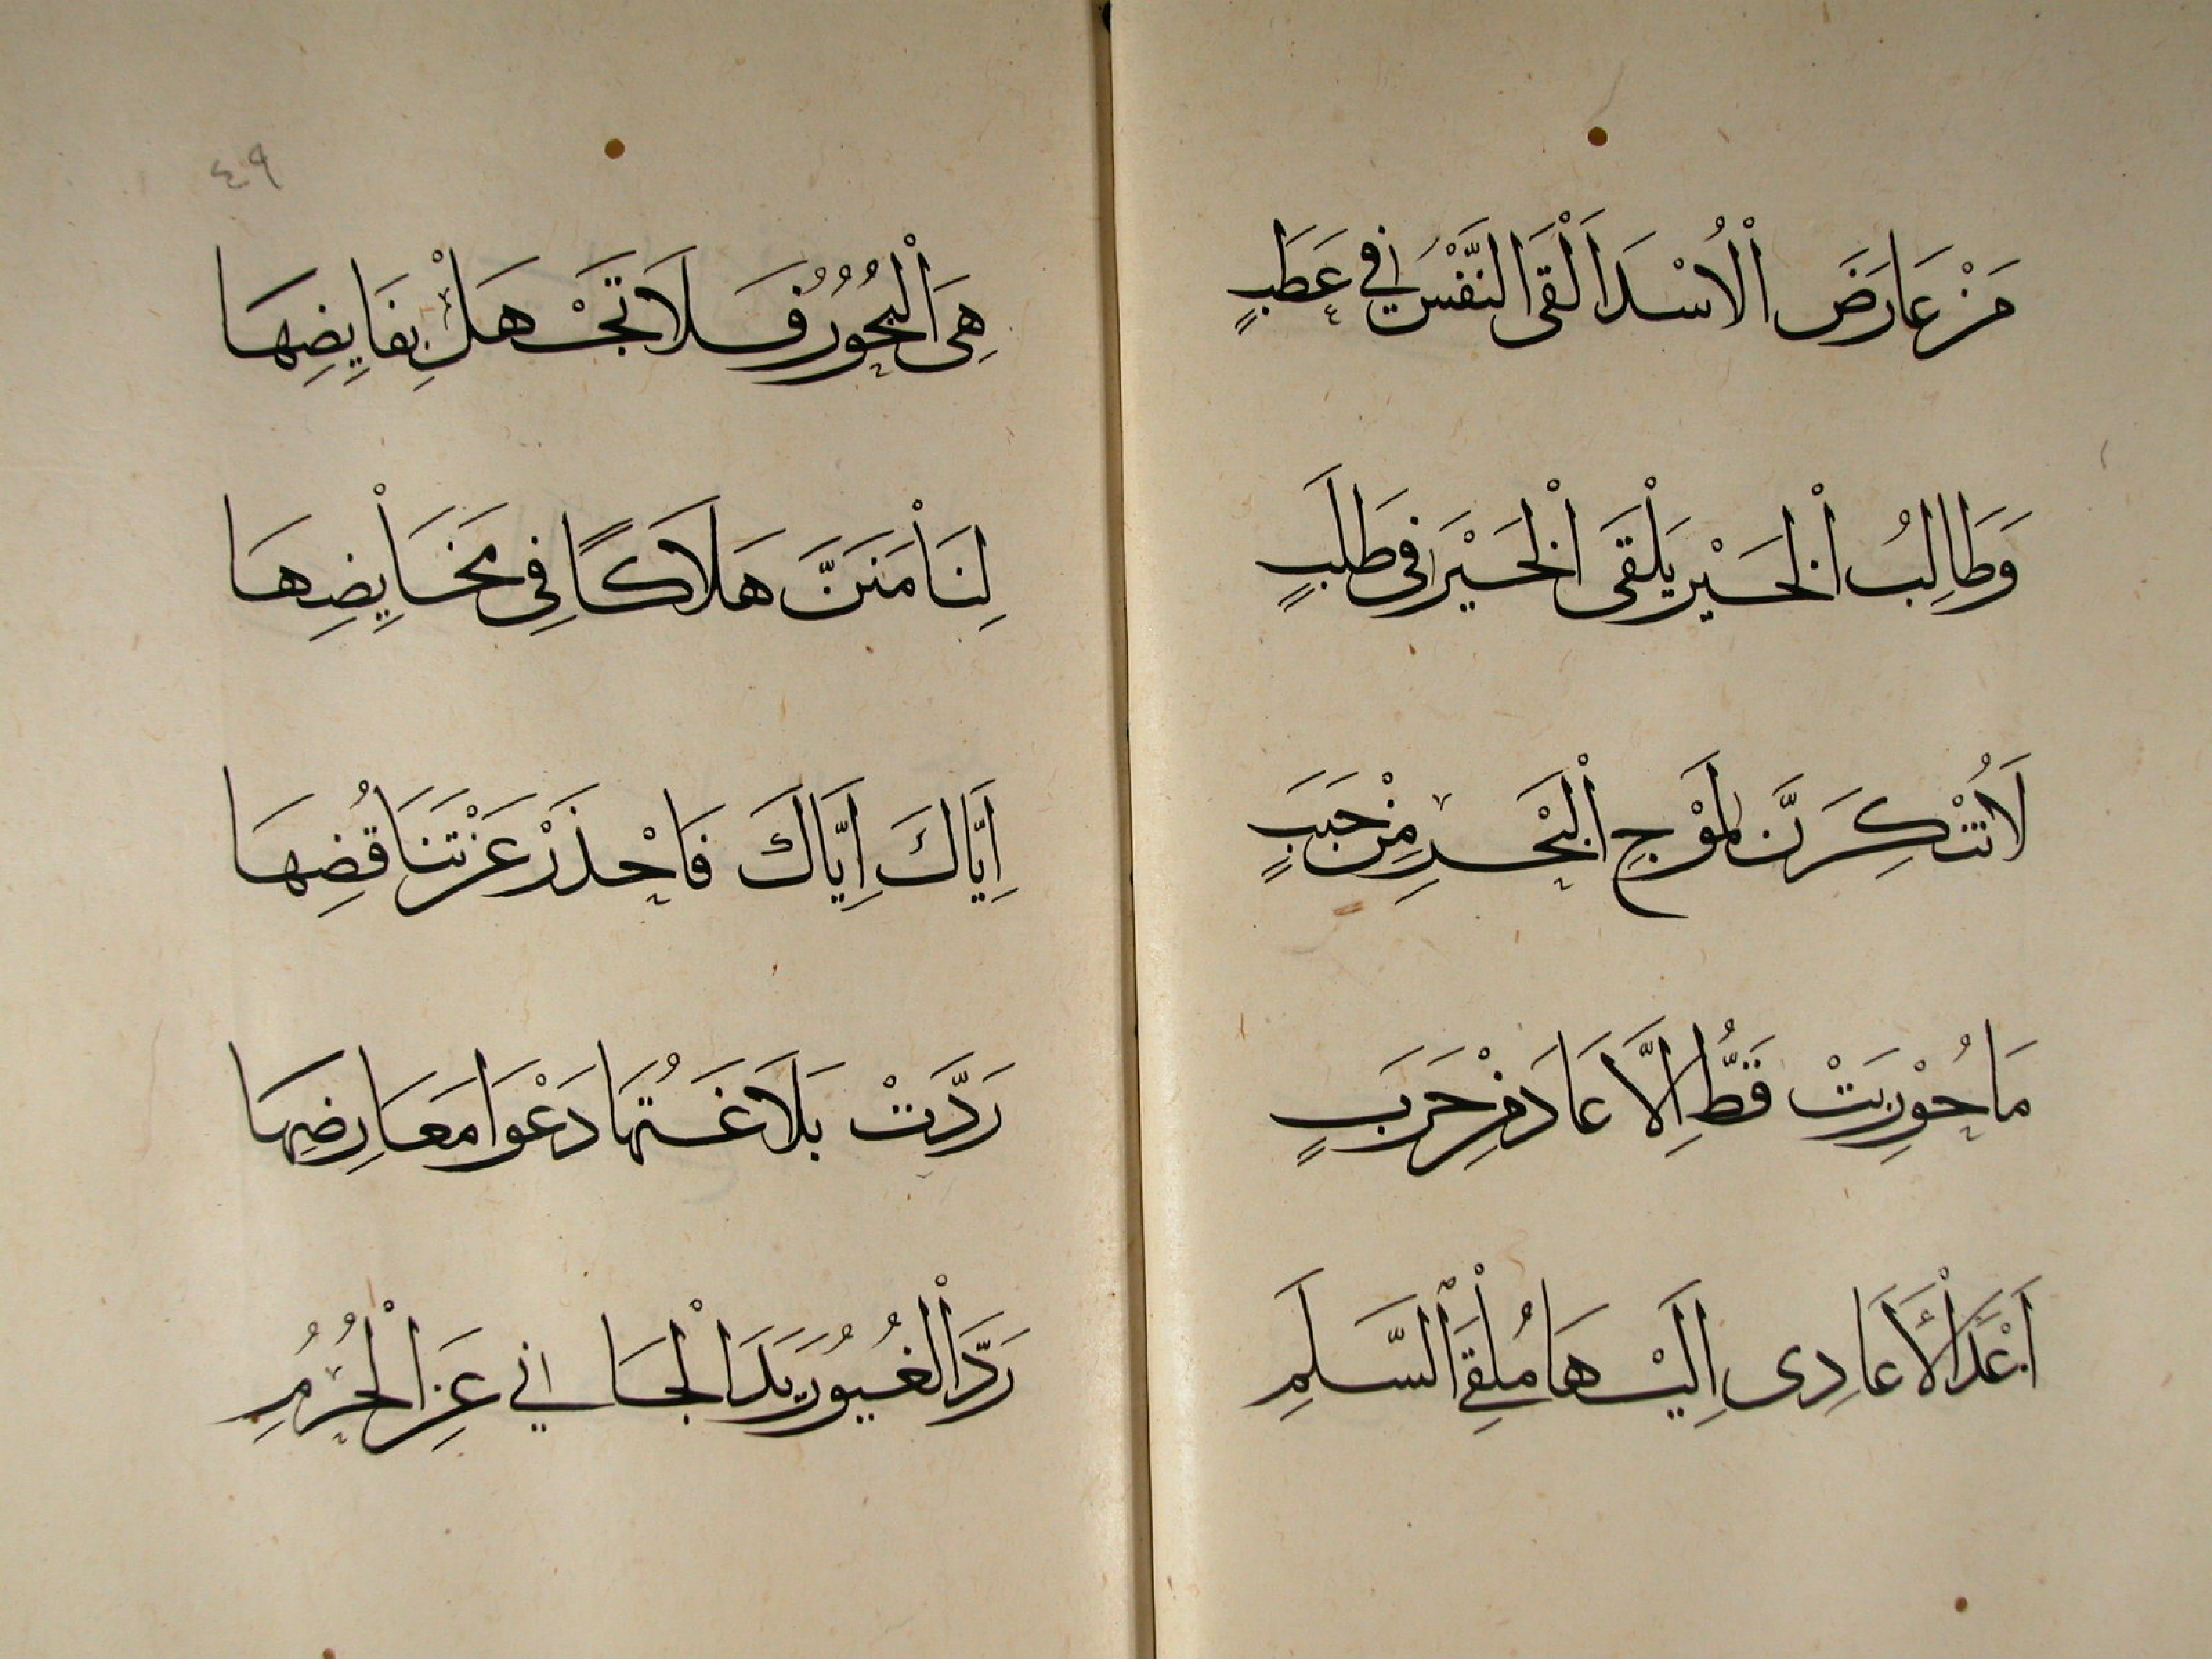 مَنْ عَارَضَ الْاُسْدَ اَلْقَى النَّفْسَ فِي عَطَبٍ
وَطَالِبُ الْخَيْرِ يَلْقَى الْخَيْرَ فِى طَلَبٍ
لَا تُنْكِرَنَّ لِمَوْجِ الْبَحْرِ مِنْ حَبَبٍ
مَا حُوْرِبَتْ قَطُّ اِلَّا عَادَ مِنْ حَرَبٍ
اَعْدَا الْأَعَادِى اِلَيْهَا مُلْقِىَ السَّلَمِ
٤٩
هِىَ الْبُحُوْرُ فَلَا تَجْهَلْ بِفَايِضِهَا
لِتَأْمَنَنَّ هَلَاكًا فِى مَخَايِضِهَا
اِيَّاكَ اِيَّاكَ فَاحْذَرْ عَنْ تَنَاقُضِهَا
رَدَّتْ بَلَاغَتُهَا دَعْوَا مَعَارِضِهَا
رَدَّ الْغُيُوْرُ يَدَ الْجَانِي عَنِ الْحُرُمِ